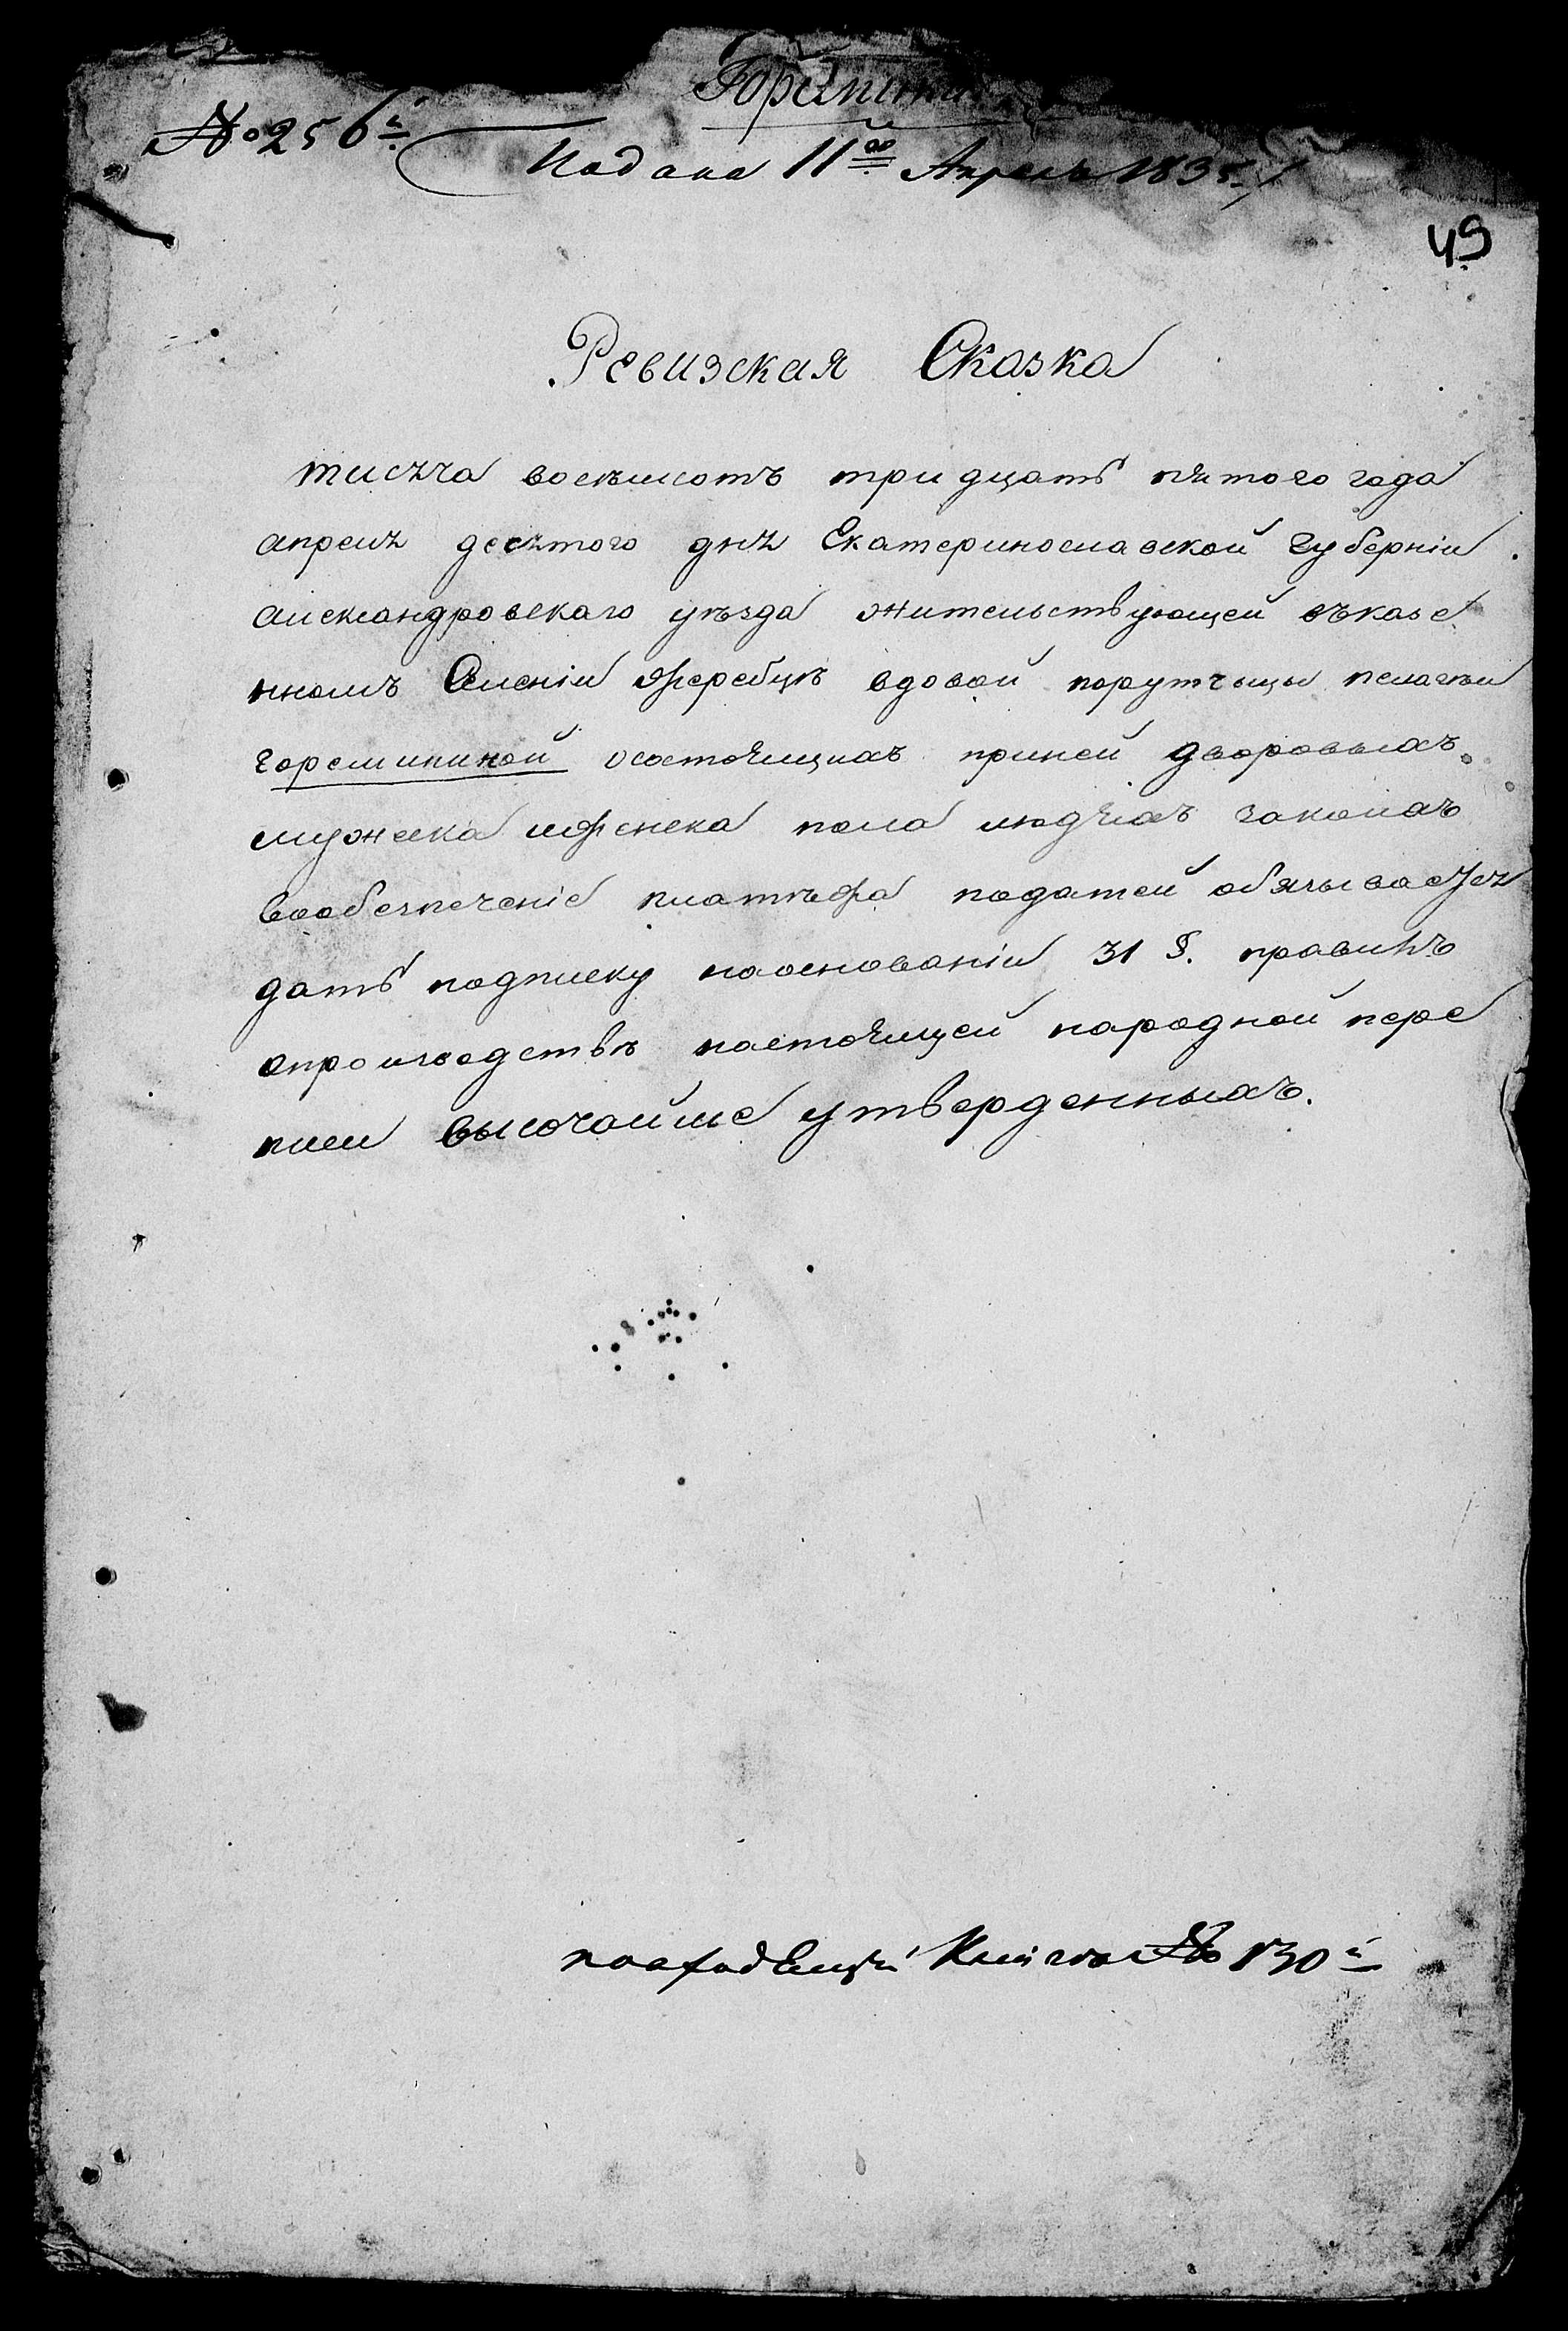 № 256й
Подана 11го Апреля 1835./
49
Ревизская Сказка
тисяча восьмсотъ тридцать пятого года
апреля десятого дня Екатеринославской губерніи
александровскаго уѣзда жительствующей въказе
нномъ Селеніи Жеребцѣ вдовой порутчыцы пелагѣи
горемыкиной осостоящихъ приней дворовыхъ
мужеска иженска пола людяхъ закоихъ
вообезпеченіе платѣжа податей обязывается
дать подписку наоснованіи 31 §. правилъ
опроизводствѣ настоящей народной пере
писи высочайше утвержденныхъ.
повходящей Книгѣ № 130й